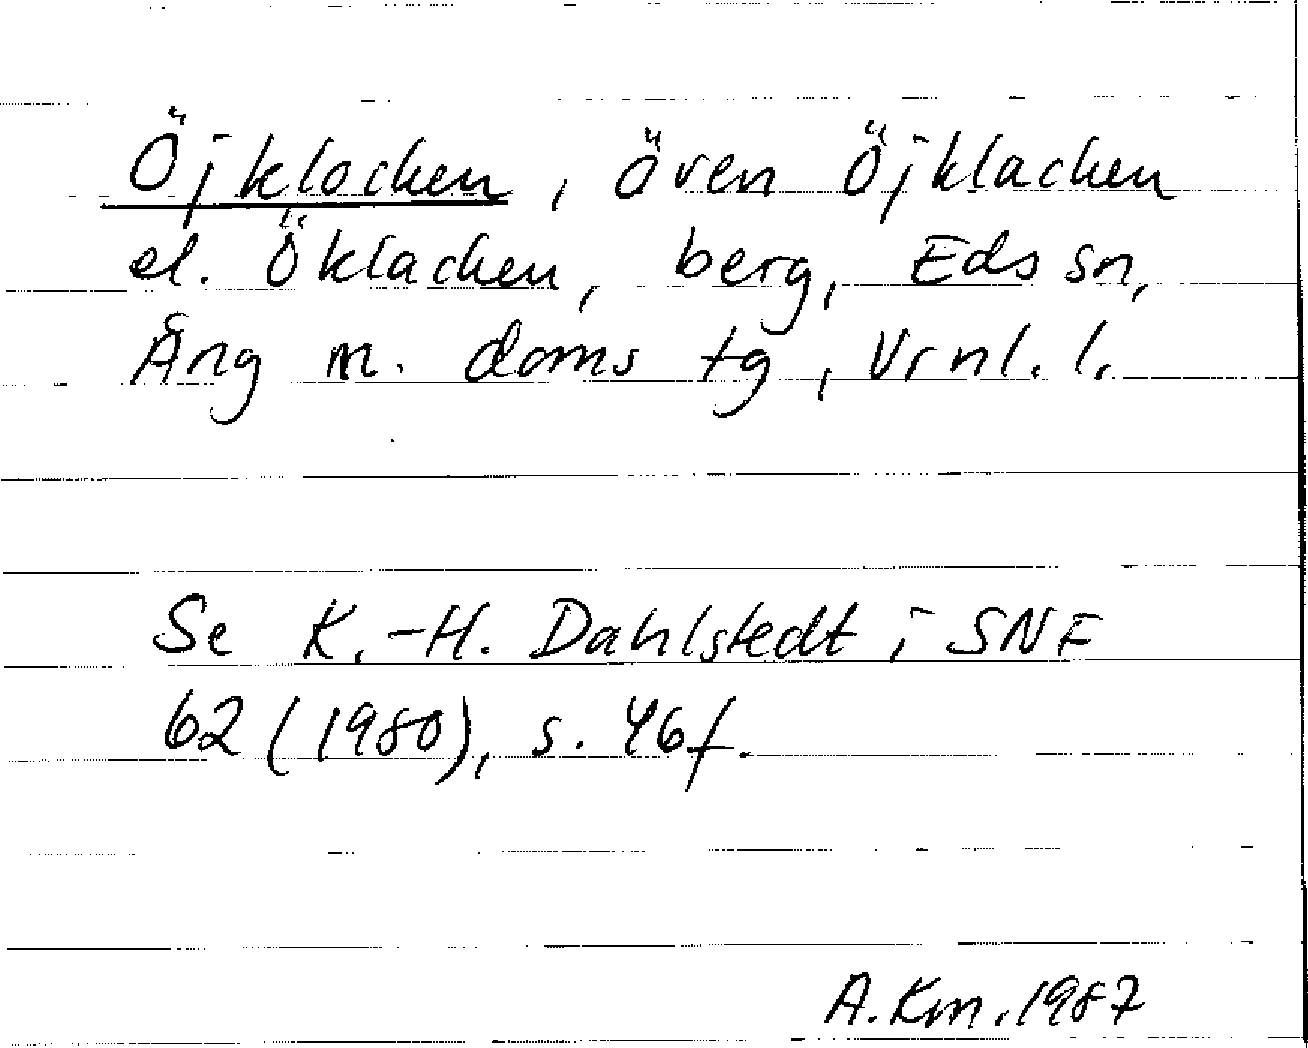 Öjklocken, även Öjklacken
el. Öklacken, berg, Eds sn,
Ång m. doms tg, Vrnl. l.
Se K.-H. Dahlstedt i SNF
62 (1980), s. 46f.
A.Km. 1987